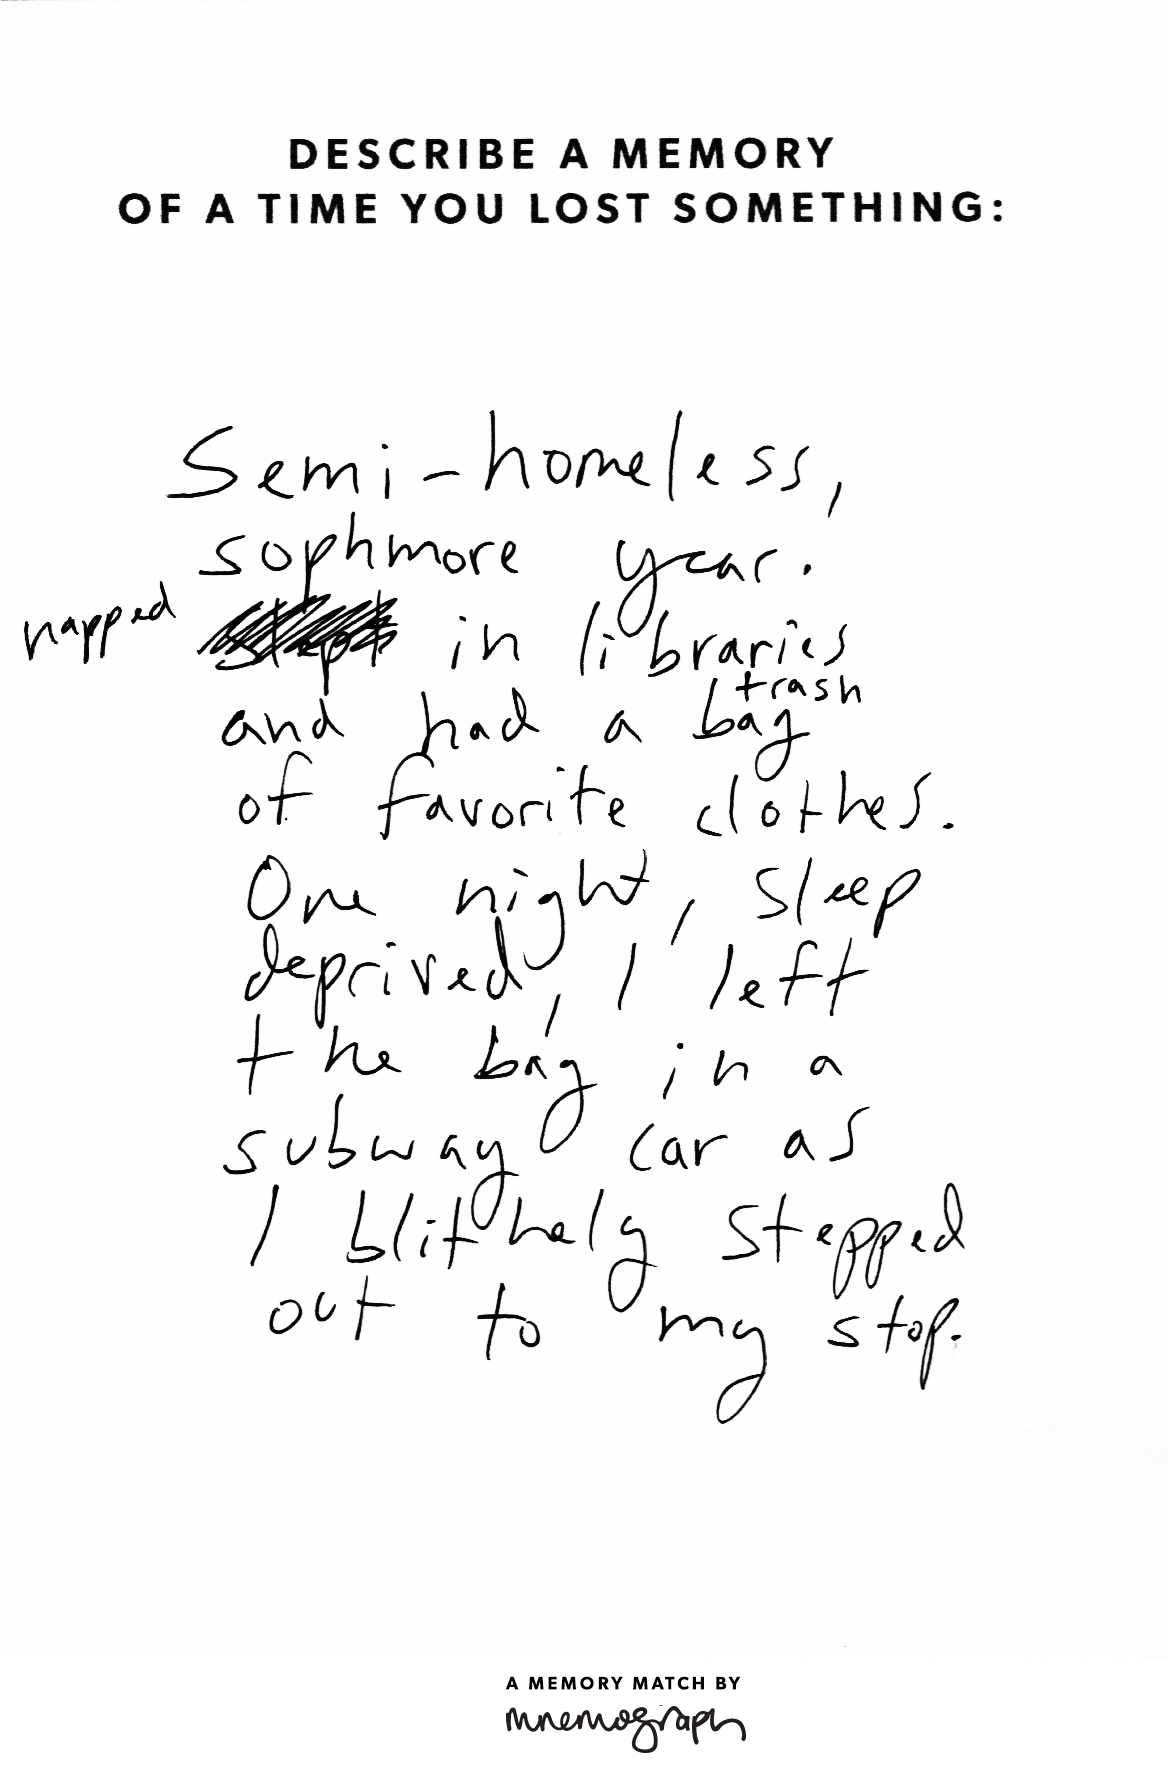 DESCRIBE A MEMORY
OF A TIME YOU LOST SOMETHING:
Semi-homeless,
sophmore year.
napped in libraries
trash
and had a bag
of favorite clothes.
One night, sleep
deprived, I left
the bag in a
subway car as
I blithely stepped
out to my stop.
A MEMORY MATCH BY
mnemograph